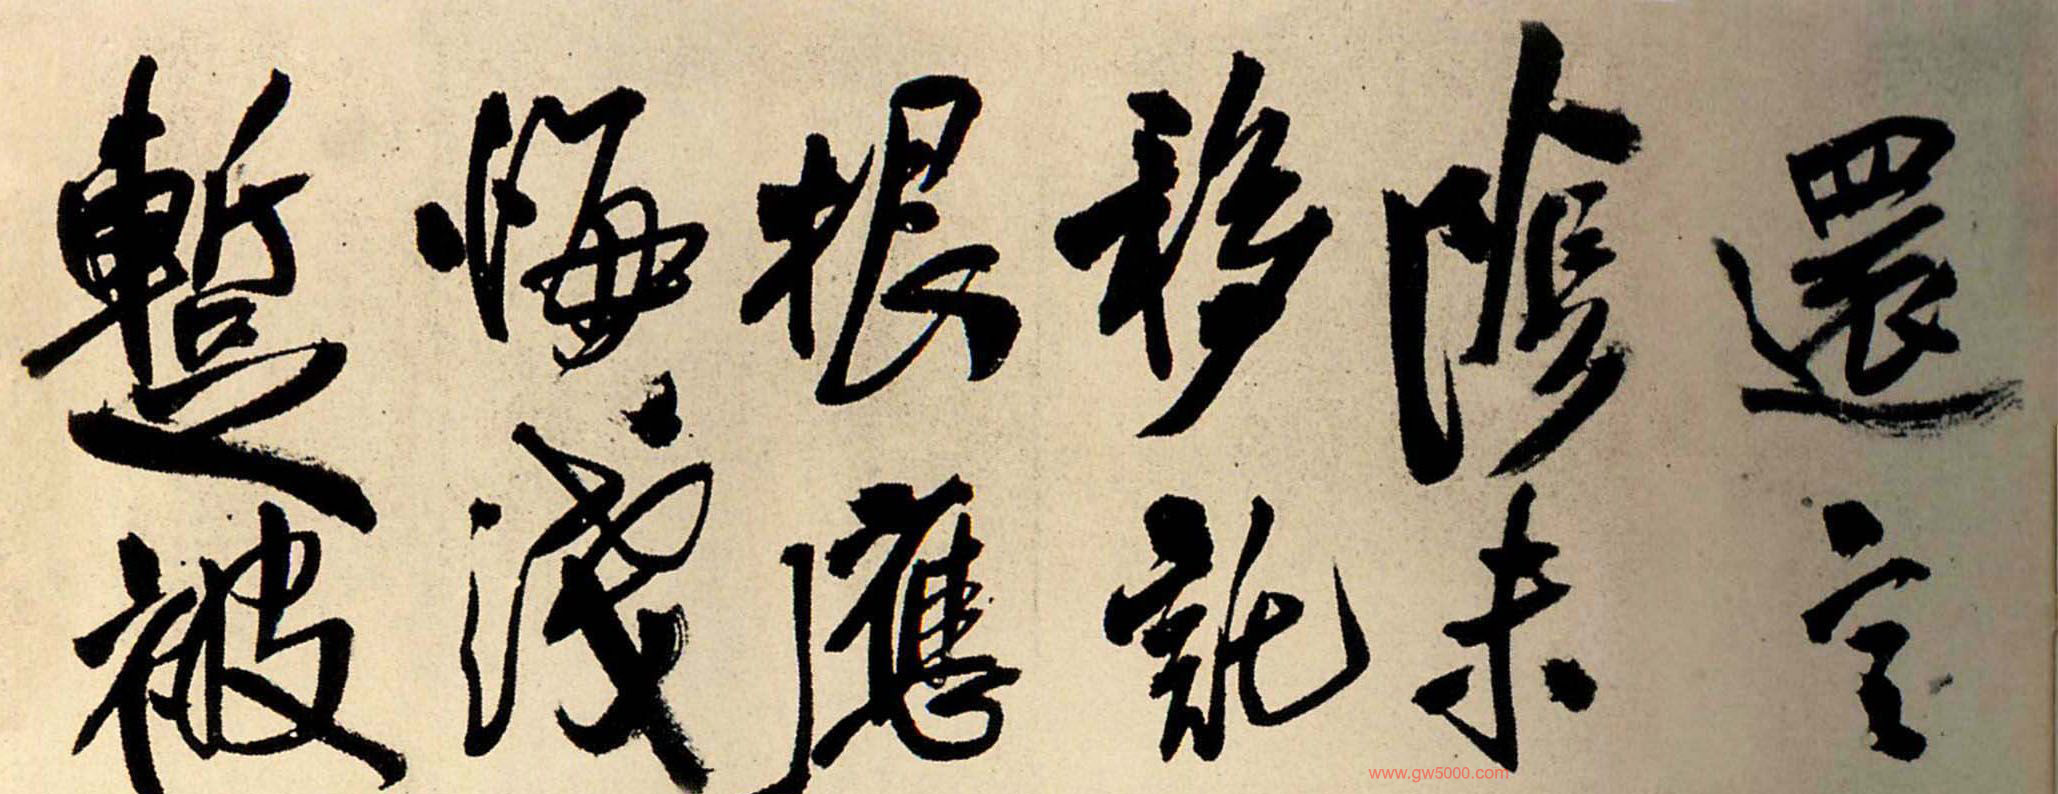 還
隂未
移託
根應
悔淺
蹔被
www.gw5000.com